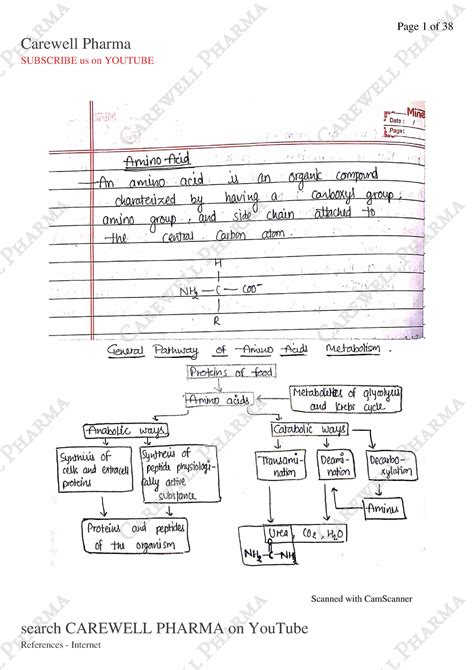 Page 1 of 38
Carewell Pharma
SUBSCRIBE us on YOUTUBE
CAREWELL PHARMA
Mine
Date: /
Page:
Amino-Acid
An amino acid is an organic compound
charaterized by having a carboxyl group,
amino group, and side chain attached to
the central carbon atom.
H
NH2 — C — COO-
R
General Pathway of Amino Acids Metabolism.
Proteins of food
Amino acids
Metabolites of glycolysis
and krebs cycle
Anabolic ways
Catabolic ways
Synthesis of
cells and extracell
proteins
Synthesis of
peptide physiologi-
cally active
substance
Transami-
nation
Deami-
nation
Decarbo-
xylation
Amines
Proteins and peptides
of the organism
Urea, CO2, H2O
O
NH2 — C — NH2
Scanned with CamScanner
search CAREWELL PHARMA on YouTube
References - Internet